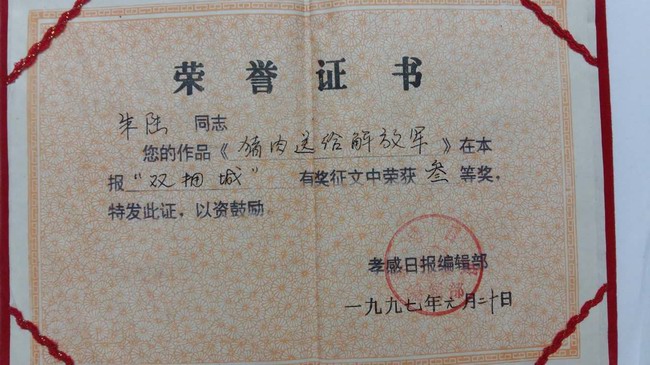 荣誉证书
朱陆 同志
您的作品《猪肉送给解放军》在本
报“双拥城” 有奖征文中荣获 叁 等奖,
特发此证,以资鼓励。
孝感日报编辑部
一九九七年元月二十日